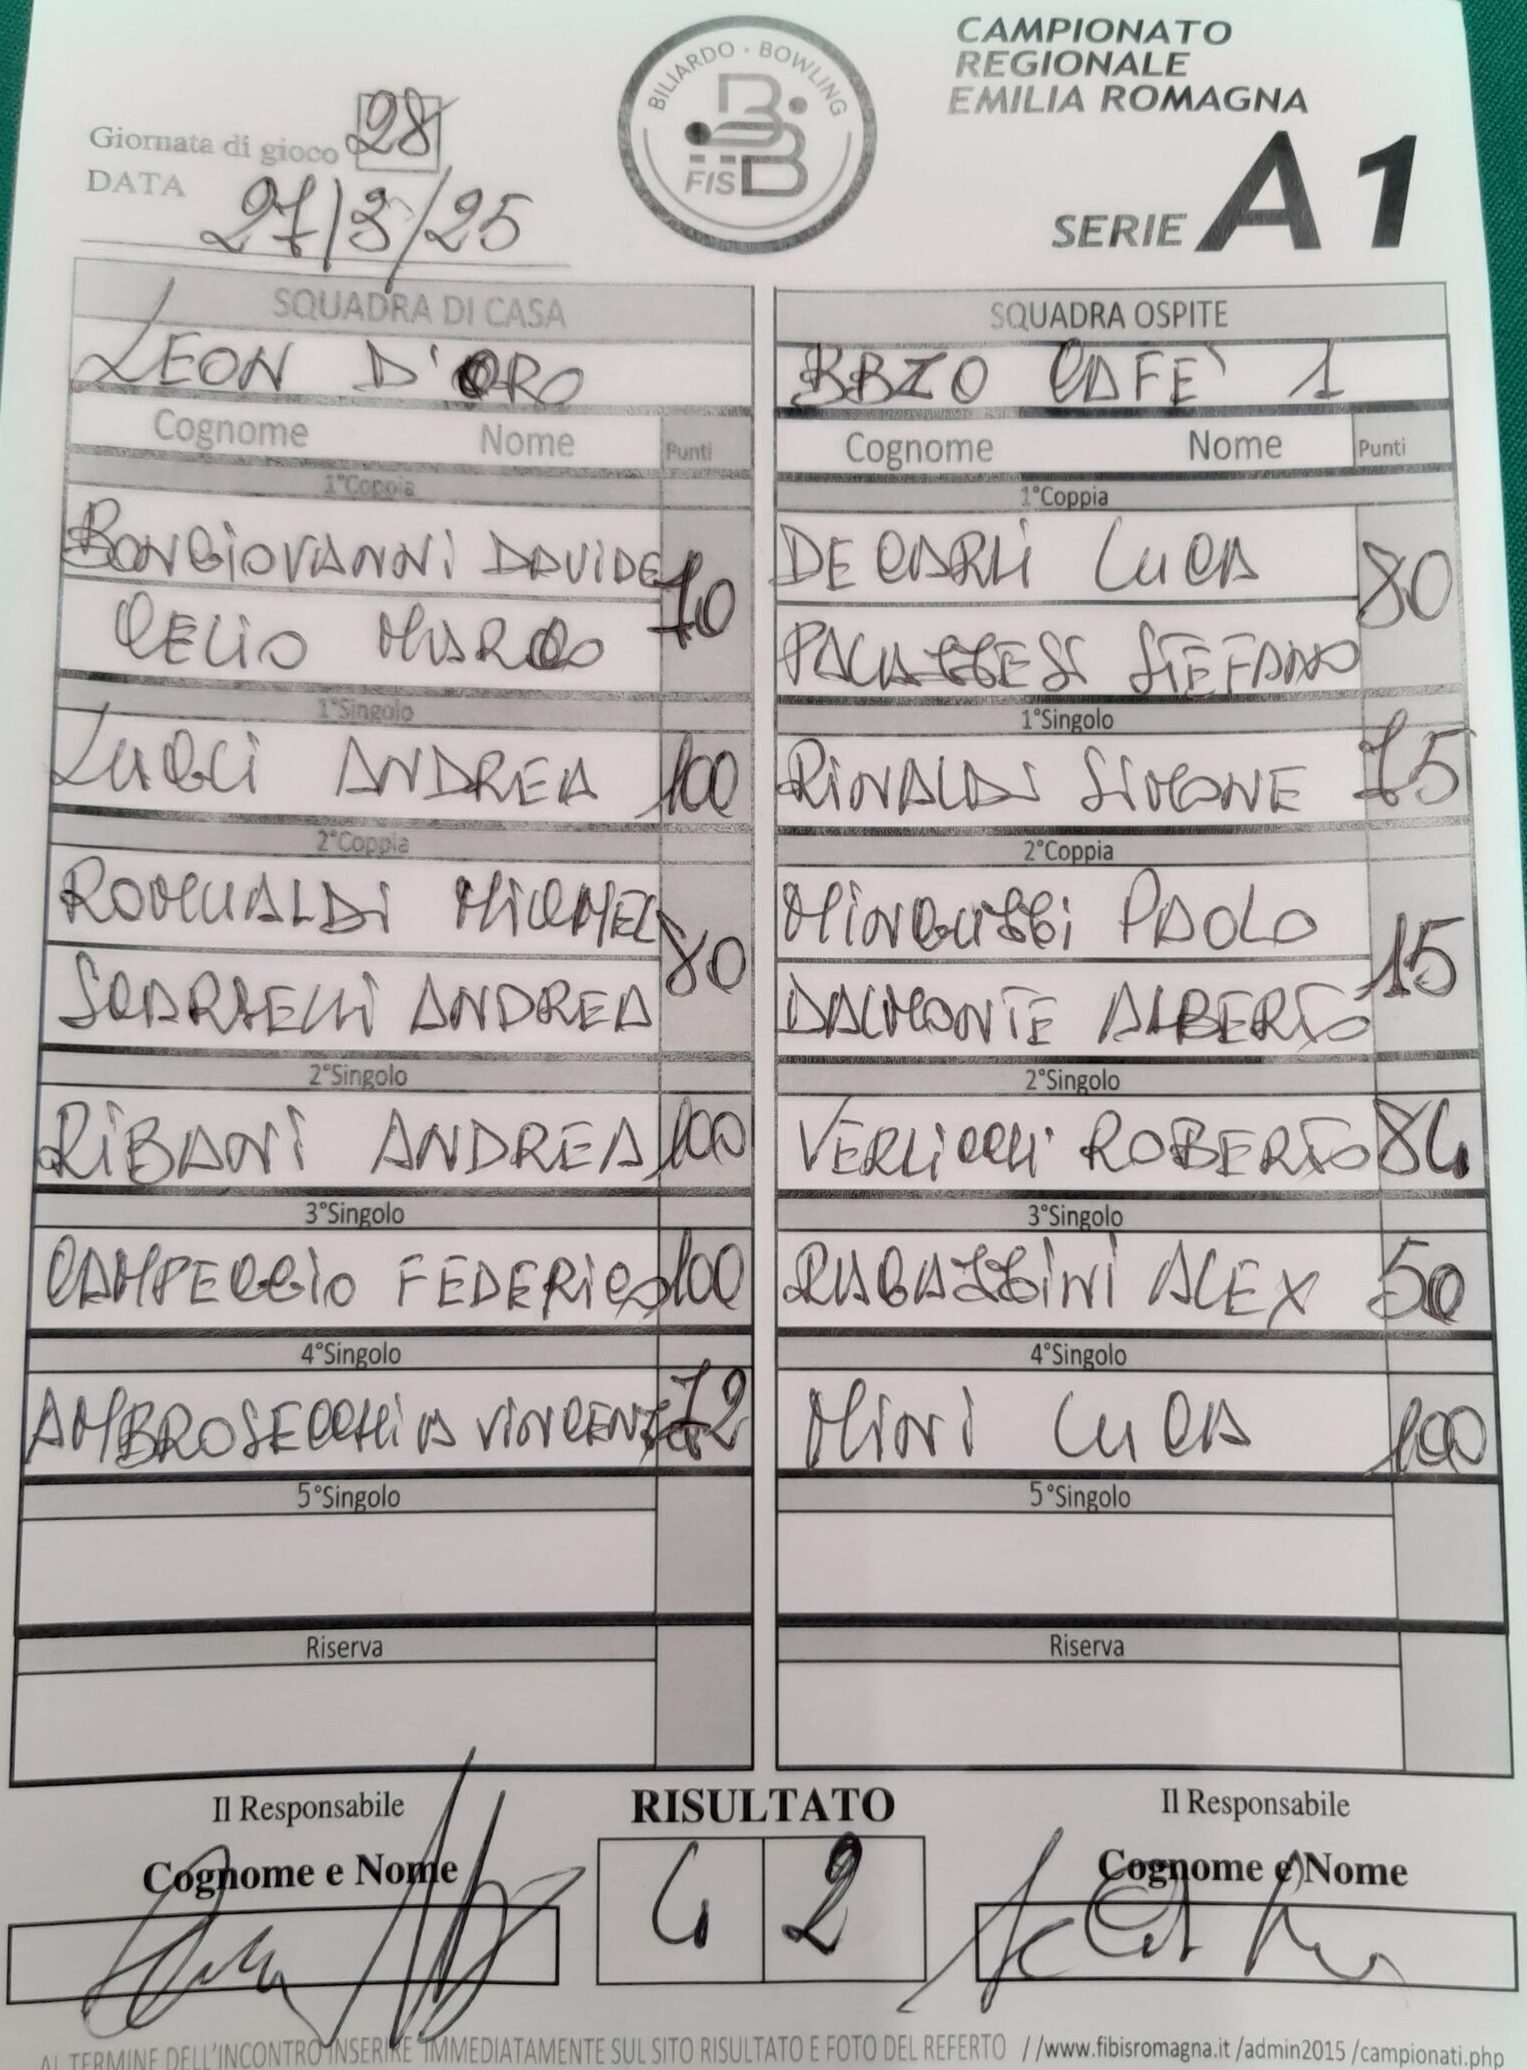 BILIARDO · BOWLING
FISBB
CAMPIONATO
REGIONALE
EMILIA ROMAGNA
SERIE A1
Giornata di gioco 28
DATA
27/3/25
SQUADRA DI CASA
LEON D'ORO
Cognome Nome Punti
1°Coppia
BONGIOVANNI DAVIDE 70
CELIO MARCO
1°Singolo
LUGLI ANDREA 100
2°Coppia
ROMUALDI MICHAEL 80
SCARSELLI ANDREA
2°Singolo
RIBANI ANDREA 100
3°Singolo
CAMPEGGIO FEDERICO 100
4°Singolo
AMBROSECCHIA VINCENZO 72
5°Singolo
Riserva
SQUADRA OSPITE
BBZO CAFE' 1
Cognome Nome Punti
1°Coppia
DE CARLI LUCA 80
PALAZZESI STEFANO
1°Singolo
RINALDI SIMONE 75
2°Coppia
MINGUZZI PAOLO 15
DALMONTE ALBERTO
2°Singolo
VERLICCHI ROBERTO 84
3°Singolo
RAGAZZINI ALEX 50
4°Singolo
MINI LUCA 100
5°Singolo
Riserva
Il Responsabile
Cognome e Nome
RISULTATO
4 2
Il Responsabile
Cognome e Nome
AL TERMINE DELL'INCONTRO INSERIRE IMMEDIATAMENTE SUL SITO RISULTATO E FOTO DEL REFERTO //www.fibisromagna.it /admin2015 /campionati.php